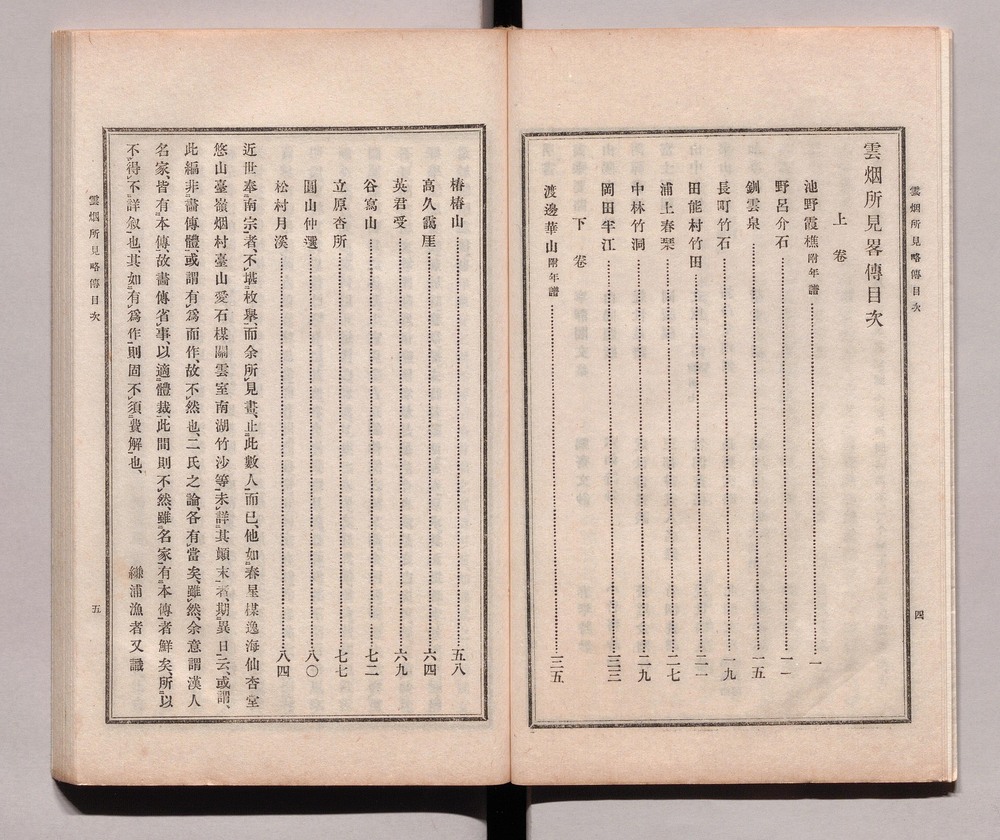 雲烟所見略傳目次
四
雲烟所見畧傳目次
上卷
池野霞樵附年譜………一
野呂介石………一一
釧雲泉………一五
長町竹石………一九
田能村竹田………二一
浦上春琴………二七
中林竹洞………二九
岡田半江………三三
下卷
渡邊華山附年譜………三五
椿椿山………五八
高久靄厓………六四
英君受………六九
谷寫山………七二
立原杏所………七七
圓山仲選………八〇
松村月溪………八四
近世奉南宗者、不堪枚擧、而余所見畫、止此數人而已、他如春星楳逸海仙杏堂
悠山臺嶺烟村臺山愛石楳關雲室南湖竹沙等、未詳其顚末者、期異日云、或謂、
此編非畫傳體、或謂有爲而作、故不然也、二氏之論、各有當矣、雖然、余意謂漢人
名家、皆有本傳、故畫傳省事、以適體裁、此間則不然、雖名家、有本傳者鮮矣、所以
不得不詳敍也、其如有爲作、則固不須費解也、
鎌浦漁者又識
雲烟所見略傳目次
五